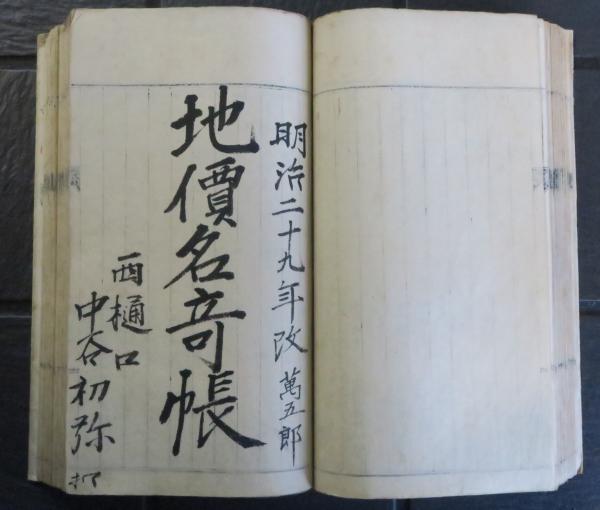 明治二十九年改 萬五郎
地價名竒帳
西樋口
中谷初弥